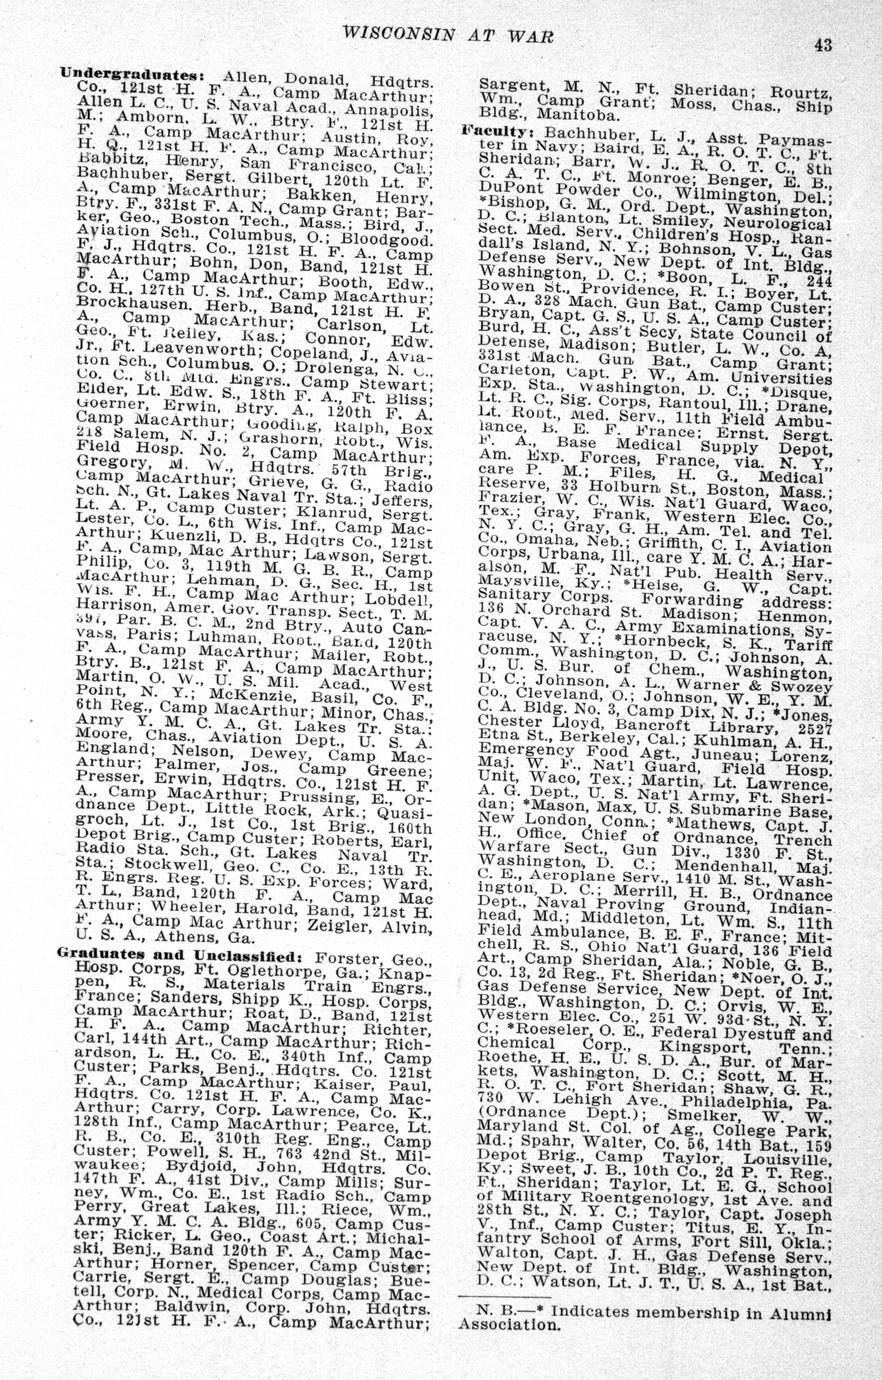 WISCONSIN AT WAR
43
Undergraduates: Allen, Donald, Hdqtrs.
Co., 121st H. F. A., Camp MacArthur;
Allen L. C., U. S. Naval Acad., Annapolis,
M.; Amborn, L. W., Btry. F., 121st H.
F. A., Camp MacArthur; Austin, Roy,
H. Q., 121st H. F. A., Camp MacArthur;
Babbitz, Henry, San Francisco, Cal.;
Bachhuber, Sergt. Gilbert, 120th Lt. F.
A., Camp MacArthur; Bakken, Henry,
Btry. F., 331st F. A. N., Camp Grant; Bar-
ker, Geo., Boston Tech., Mass.; Bird, J.,
Aviation Sch., Columbus, O.; Bloodgood.
F. J., Hdqtrs. Co., 121st H. F. A., Camp
MacArthur; Bohn, Don, Band, 121st H.
F. A., Camp MacArthur; Booth, Edw.,
Co. H., 127th U. S. Inf., Camp MacArthur;
Brockhausen. Herb., Band, 121st H. F.
A., Camp MacArthur; Carlson, Lt.
Geo., Ft. Reiley, Kas.; Connor, Edw.
Jr., Ft. Leavenworth; Copeland, J., Avia-
tion Sch., Columbus. O.; Drolenga, N. C.,
Co. C., 8th Mtd. Engrs., Camp Stewart;
Elder, Lt. Edw. S., 18th F. A., Ft. Bliss;
Goerner, Erwin, Btry. A., 120th F. A.
Camp MacArthur; Gooding, Ralph, Box
218 Salem, N. J.; Grashorn, Robt., Wis.
Field Hosp. No. 2, Camp MacArthur;
Gregory, M. W., Hdqtrs. 57th Brig.,
Camp MacArthur; Grieve, G. G., Radio
Sch. N., Gt. Lakes Naval Tr. Sta.; Jeffers,
Lt. A. P., Camp Custer; Klanrud, Sergt.
Lester, Co. L., 6th Wis. Inf., Camp Mac-
Arthur; Kuenzli, D. B., Hdqtrs Co., 121st
F. A., Camp, Mac Arthur; Lawson, Sergt.
Philip, Co. 3, 119th M. G. B. R., Camp
MacArthur; Lehman, D. G., Sec. H., 1st
Wis. F. H., Camp Mac Arthur; Lobdell,
Harrison, Amer. Gov. Transp. Sect., T. M.
397, Par. B. C. M., 2nd Btry., Auto Can-
vass, Paris; Luhman, Root., Band, 120th
F. A., Camp MacArthur; Mailer, Robt.,
Btry. B., 121st F. A., Camp MacArthur;
Martin, O. W., U. S. Mil. Acad., West
Point, N. Y.; McKenzie, Basil, Co. F.,
6th Reg., Camp MacArthur; Minor, Chas.,
Army Y. M. C. A., Gt. Lakes Tr. Sta.;
Moore, Chas., Aviation Dept., U. S. A.
England; Nelson, Dewey, Camp Mac-
Arthur; Palmer, Jos., Camp Greene;
Presser, Erwin, Hdqtrs. Co., 121st H. F.
A., Camp MacArthur; Prussing, E., Or-
dnance Dept., Little Rock, Ark.; Quasi-
groch, Lt. J., 1st Co., 1st Brig., 160th
Depot Brig., Camp Custer; Roberts, Earl,
Radio Sta. Sch., Gt. Lakes Naval Tr.
Sta.; Stockwell, Geo. C., Co. E., 13th R.
R. Engrs. Reg. U. S. Exp. Forces; Ward,
T. L., Band, 120th F. A., Camp Mac
Arthur; Wheeler, Harold, Band, 121st H.
F. A., Camp Mac Arthur; Zeigler, Alvin,
U. S. A., Athens, Ga.
Graduates and Unclassified: Forster, Geo.,
Hosp. Corps, Ft. Oglethorpe, Ga.; Knap-
pen, R. S., Materials Train Engrs.,
France; Sanders, Shipp K., Hosp. Corps,
Camp MacArthur; Roat, D., Band, 121st
H. F. A., Camp MacArthur; Richter,
Carl, 144th Art., Camp MacArthur; Rich-
ardson, L. H., Co. E., 340th Inf., Camp
Custer; Parks, Benj., Hdqtrs. Co. 121st
F. A., Camp MacArthur; Kaiser, Paul,
Hdqtrs. Co. 121st H. F. A., Camp Mac-
Arthur; Carry, Corp. Lawrence, Co. K.,
128th Inf., Camp MacArthur; Pearce, Lt.
R. B., Co. E., 310th Reg. Eng., Camp
Custer; Powell, S. H., 763 42nd St., Mil-
waukee; Bydjoid, John, Hdqtrs. Co.
147th F. A., 41st Div., Camp Mills; Sur-
ney, Wm., Co. E., 1st Radio Sch., Camp
Perry, Great Lakes, Ill.; Riece, Wm.,
Army Y. M. C. A. Bldg., 605, Camp Cus-
ter; Ricker, L. Geo., Coast Art.; Michal-
ski, Benj., Band 120th F. A., Camp Mac-
Arthur; Horner, Spencer, Camp Custer;
Carrie, Sergt. E., Camp Douglas; Bue-
tell, Corp. N., Medical Corps, Camp Mac-
Arthur; Baldwin, Corp. John, Hdqtrs.
Co., 121st H. F. A., Camp MacArthur;
Sargent, M. N., Ft. Sheridan; Rourtz,
Wm., Camp Grant; Moss, Chas., Ship
Bldg., Manitoba.
Faculty: Bachhuber, L. J., Asst. Paymas-
ter in Navy; Baird, E. A., R. O. T. C., Ft.
Sheridan; Barr, W. J., R. O. T. C., 8th
C. A. T. C., Ft. Monroe; Benger, E. B.,
DuPont Powder Co., Wilmington, Del.;
*Bishop, G. M., Ord. Dept., Washington,
D. C.; Blanton, Lt. Smiley, Neurological
Sect. Med. Serv., Children's Hosp., Ran-
dall's Island, N. Y.; Bohnson, V. L., Gas
Defense Serv., New Dept. of Int. Bldg.,
Washington, D. C.; *Boon, L. F., 244
Bowen St., Providence, R. I.; Boyer, Lt.
D. A., 328 Mach. Gun Bat., Camp Custer;
Bryan, Capt. G. S., U. S. A., Camp Custer;
Burd, H. C., Ass't Secy, State Council of
Defense, Madison; Butler, L. W., Co. A,
331st Mach. Gun Bat., Camp Grant;
Carleton, Capt. P. W., Am. Universities
Exp. Sta., Washington, D. C.; *Disque,
Lt. R. C., Sig. Corps, Rantoul, Ill.; Drane,
Lt. Root., Med. Serv., 11th Field Ambu-
lance, B. E. F. France; Ernst. Sergt.
F. A., Base Medical Supply Depot,
Am. Exp. Forces, France, via. N. Y.,
care P. M.; Files, H. G., Medical
Reserve, 33 Holburn St., Boston, Mass.;
Frazier, W. C., Wis. Nat'l Guard, Waco,
Tex.; Gray, Frank, Western Elec. Co.,
N. Y. C.; Gray, G. H., Am. Tel. and Tel.
Co., Omaha, Neb.; Griffith, C. I., Aviation
Corps, Urbana, Ill., care Y. M. C. A.; Har-
alson, M. F., Nat'l Pub. Health Serv.,
Maysville, Ky.; *Heise, G. W., Capt.
Sanitary Corps. Forwarding address:
136 N. Orchard St. Madison; Henmon,
Capt. V. A. C., Army Examinations, Sy-
racuse, N. Y.; *Hornbeck, S. K., Tariff
Comm., Washington, D. C.; Johnson, A.
J., U. S. Bur. of Chem., Washington,
D. C.; Johnson, A. L., Warner & Swozey
Co., Cleveland, O.; Johnson, W. E., Y. M.
C. A. Bldg. No. 3, Camp Dix, N. J.; *Jones,
Chester Lloyd, Bancroft Library, 2527
Etna St., Berkeley, Cal.; Kuhlman, A. H.,
Emergency Food Agt., Juneau; Lorenz,
Maj. W. F., Nat'l Guard, Field Hosp.
Unit, Waco, Tex.; Martin, Lt. Lawrence,
A. G. Dept., U. S. Nat'l Army, Ft. Sheri-
dan; *Mason, Max, U. S. Submarine Base,
New London, Conn.; *Mathews, Capt. J.
H., Office, Chief of Ordnance, Trench
Warfare Sect., Gun Div., 1330 F. St.,
Washington, D. C.; Mendenhall, Maj.
C. E., Aeroplane Serv., 1410 M. St., Wash-
ington, D. C.; Merrill, H. B., Ordnance
Dept., Naval Proving Ground, Indian-
head, Md.; Middleton, Lt. Wm. S., 11th
Field Ambulance, B. E. F., France; Mit-
chell, R. S., Ohio Nat'l Guard, 136 Field
Art., Camp Sheridan, Ala.; Noble, G. B.,
Co. 13, 2d Reg., Ft. Sheridan; *Noer, O. J.,
Gas Defense Service, New Dept. of Int.
Bldg., Washington, D. C.; Orvis, W. E.,
Western Elec. Co., 251 W. 93d St., N. Y.
C.; *Roeseler, O. E., Federal Dyestuff and
Chemical Corp., Kingsport, Tenn.;
Roethe, H. E., U. S. D. A., Bur. of Mar-
kets, Washington, D. C.; Scott, M. H.,
R. O. T. C., Fort Sheridan; Shaw, G. R.,
730 W. Lehigh Ave., Philadelphia, Pa.
(Ordnance Dept.); Smelker, W. W.,
Maryland St. Col. of Ag., College Park,
Md.; Spahr, Walter, Co. 56, 14th Bat., 159
Depot Brig., Camp Taylor, Louisville,
Ky.; Sweet, J. B., 10th Co., 2d P. T. Reg.,
Ft., Sheridan; Taylor, Lt. E. G., School
of Military Roentgenology, 1st Ave. and
28th St., N. Y. C.; Taylor, Capt. Joseph
V., Inf., Camp Custer; Titus, E. Y., In-
fantry School of Arms, Fort Sill, Okla.;
Walton, Capt. J. H., Gas Defense Serv.,
New Dept. of Int. Bldg., Washington,
D. C.; Watson, Lt. J. T., U. S. A., 1st Bat.,
N. B.—* Indicates membership in Alumni
Association.